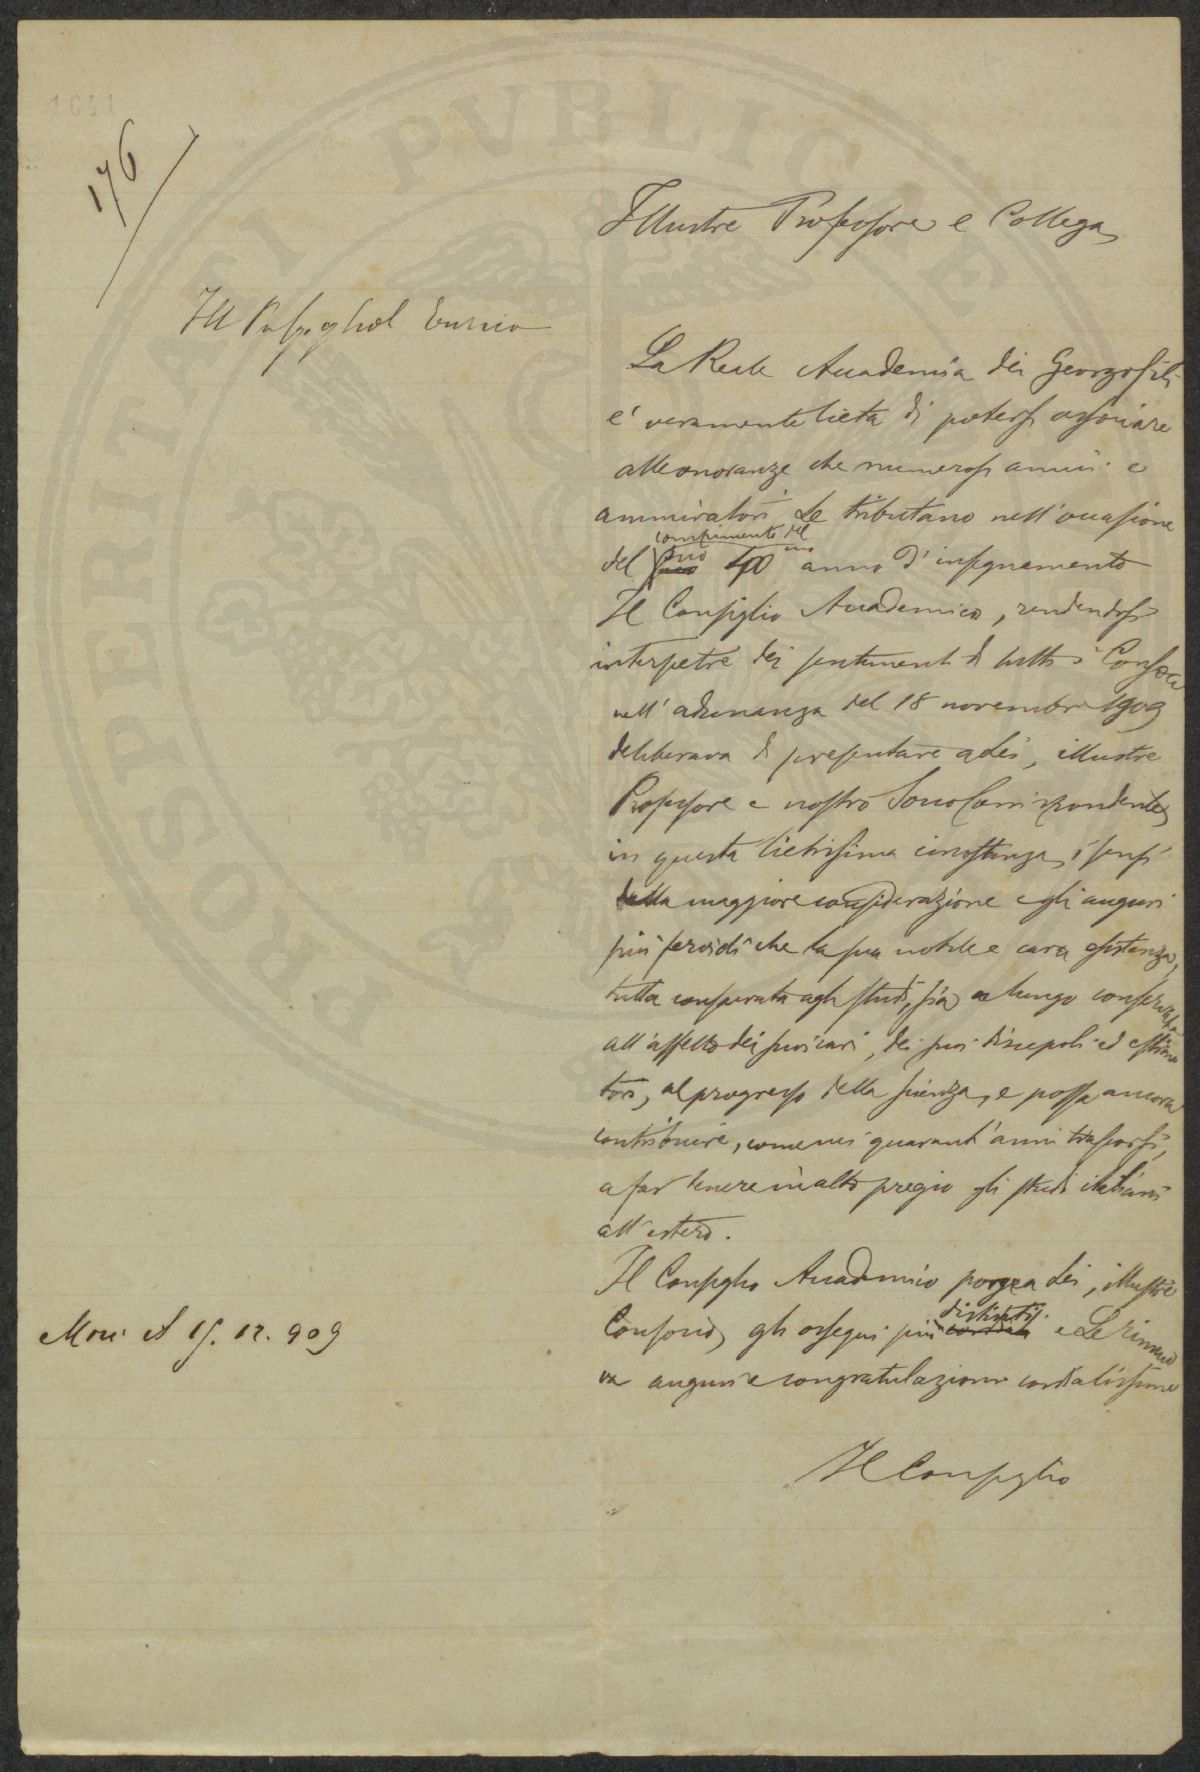 176
Illustre Professore e Collega
Ill Prof
La Reale Accademia dei Georgofili
e' veramente lieta di potersi associare
alle onoranze che numerosi amici e
ammiratori Le tributano nell'occasione
compimento del
del suo 40mo anno d'insegnamento
Il Consiglio Accademico, rendendosi
interpetre dei sentimenti di tutti i Consoci
nell'adunanza del 18 novembre 1909
deliberava di presentare a Lei, illustre
Professore e nostro Socio Corrispondente,
in questa lietissima circostanza, i sensi
della maggiore considerazione e gli auguri
più fervidi che la sua nobile e cara esistenza,
tutta consacrata agli studi, sia a lungo conservata
all'affetto dei suoi cari, dei suoi discepoli ed estima
tori, al progresso della scienza, e possa ancora
contribuire, come nei quarant'anni trascorsi,
a far tenere in alto pregio gli studi italiani
all'estero.
Il Consiglio Accademico porge a Lei, illustre
distinti
Consocio, gli ossequi più e Le rinnuo
va auguri e congratulazioni cordialissime
Il Consiglio
15. 12. 909
POSPERITATI PVBLICAE